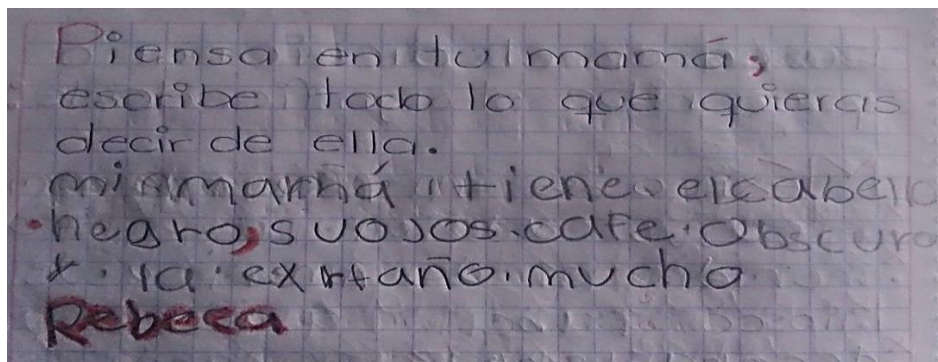 Piensa en tu mamá,
escribe todo lo que quieras
decir de ella.
mi mamá tiene el cabello
negro, su ojos cafe obscuro
y la extraño mucho
Rebeca